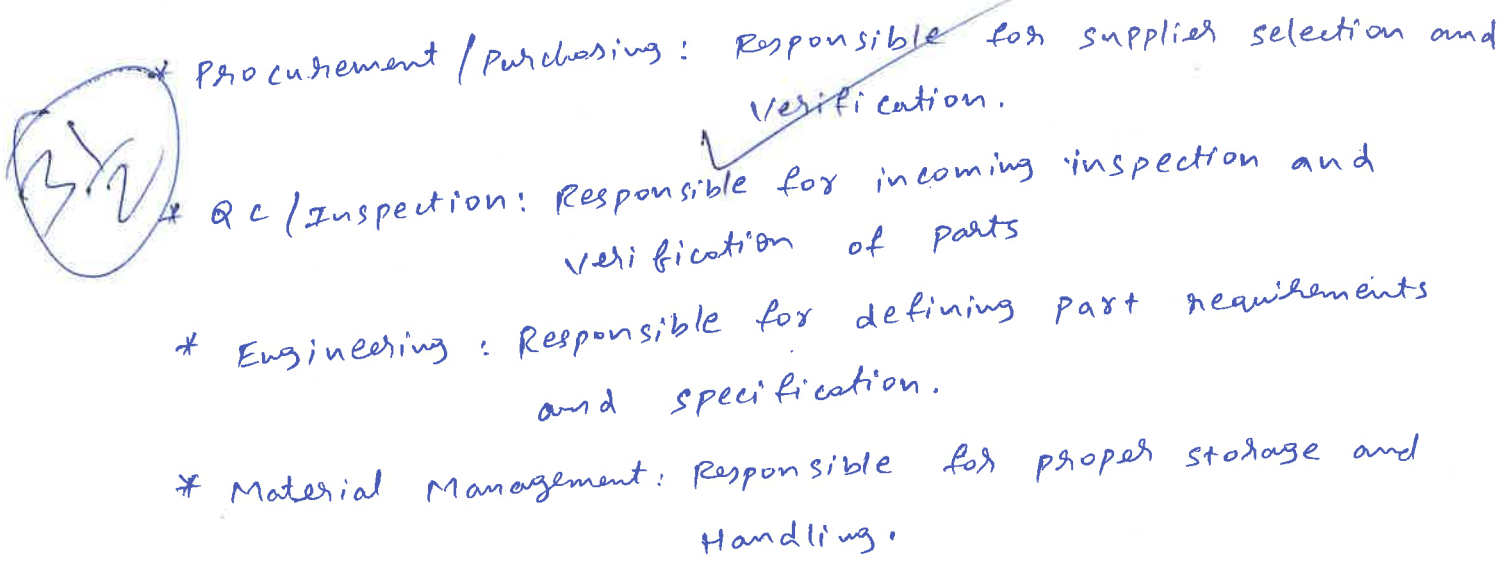 * Procurement / Purchasing : Responsible for supplier selection and
verification.
* QC / Inspection : Responsible for incoming inspection and
verification of parts
* Engineering : Responsible for defining part requirements
and specification.
* Material Management : Responsible for proper storage and
Handling.